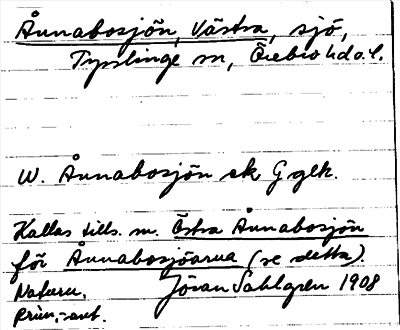 Ånnabosjön, Västra, sjö,
Tysslinge sn, Örebro hd o. l.
W. Ånnabosjön ek G glk.
Kallas tills. m. Östra Ånnabosjön
för Ånnabosjöarna (se detta)
Naturn. Jöran Sahlgren 1908
prim.-ant.